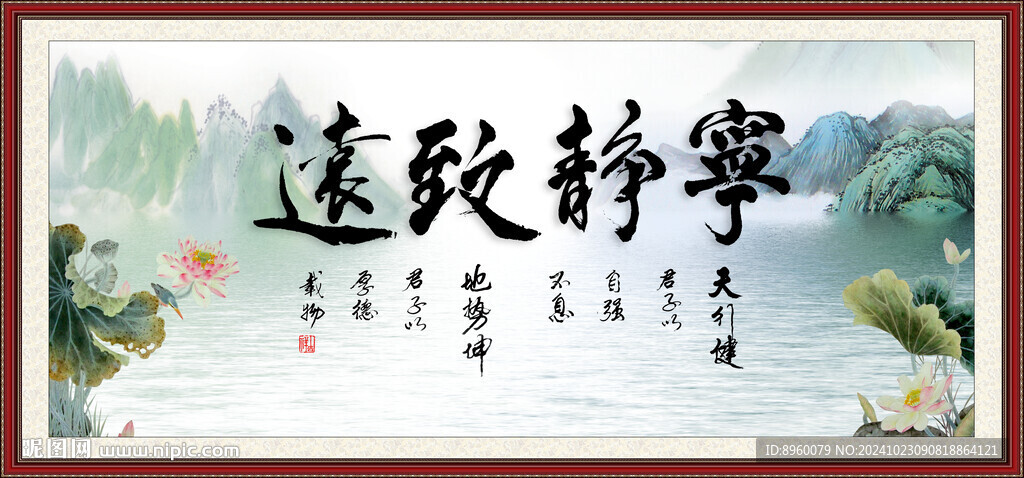 寧靜致遠
天行健
君子以
自强
不息
地勢坤
君子以
厚德
載物
昵图网 www.nipic.com
ID:8960079 NO:20241023090818864121